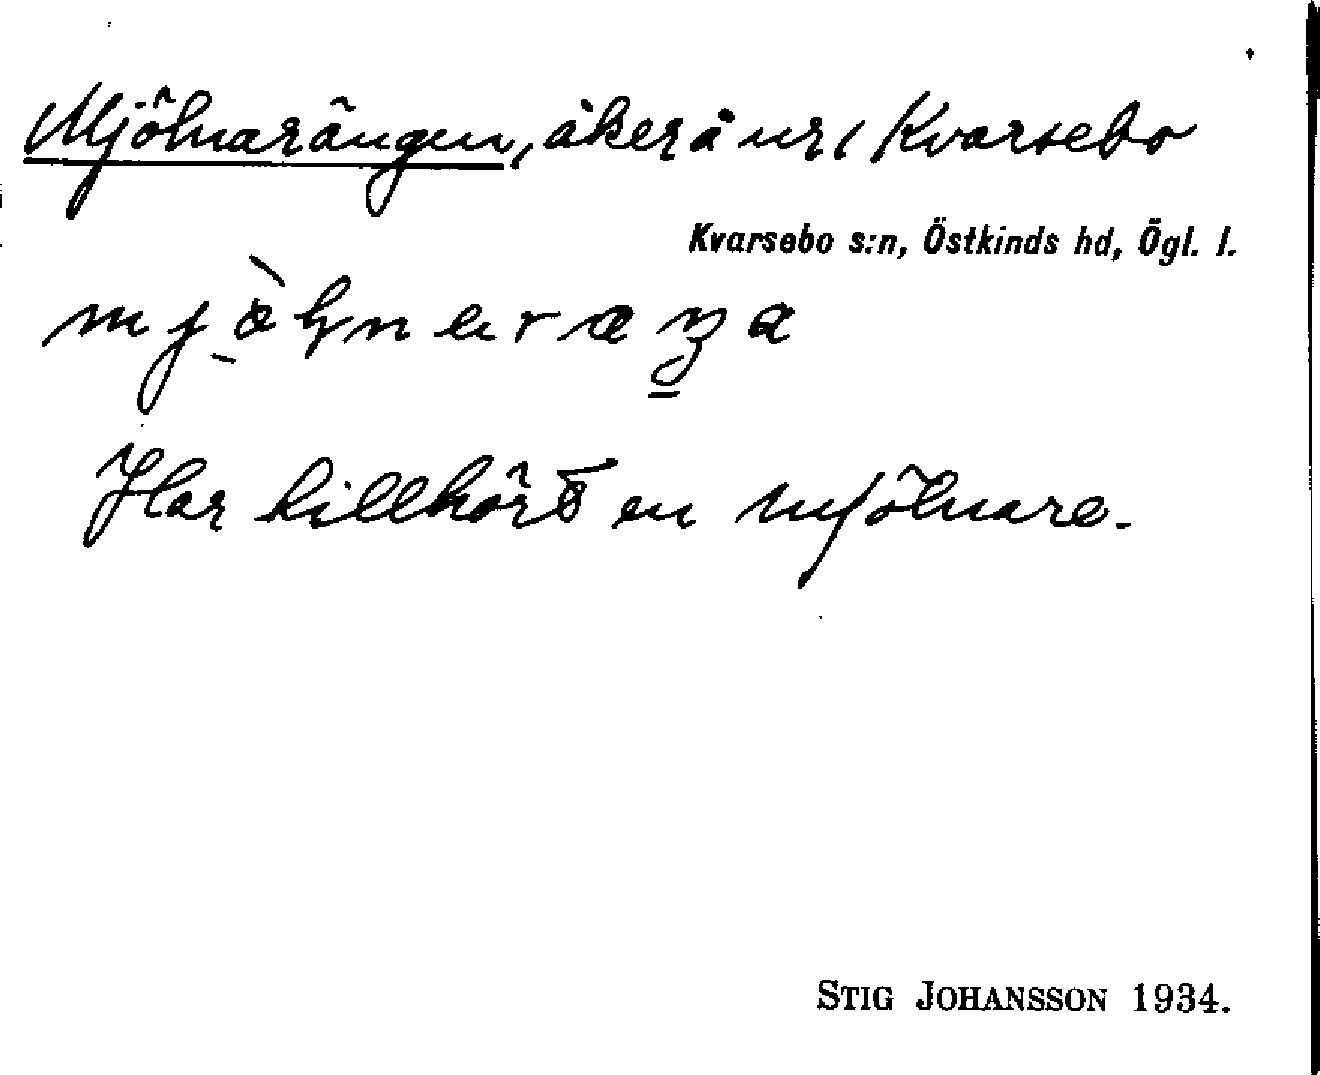 Mjölnarängen, åker å nr 1 Kvarsebo
Kvarsebo s:n, Östkinds hd, Ögl. l.
Har tillhört en mjölnare.
STIG JOHANSSON 1934.